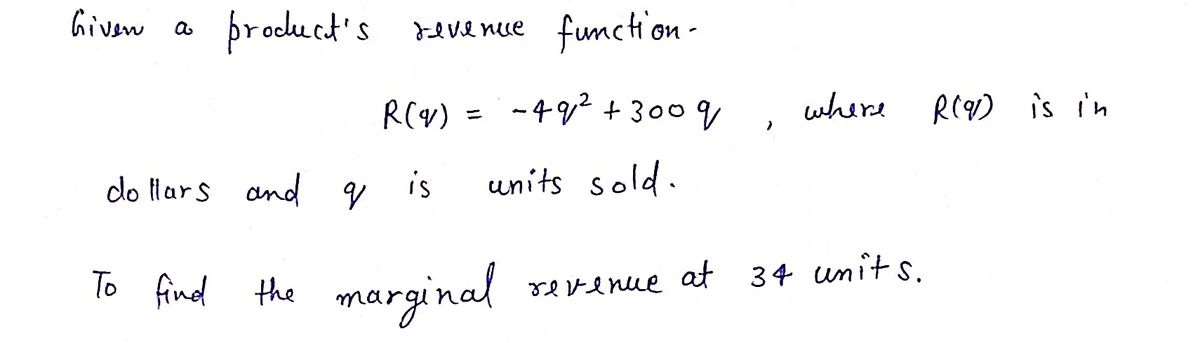 Given a product's revenue function -
R(q) = -4q² + 300q , where R(q) is in
dollars and q is units sold.
To find the marginal revenue at 34 units.